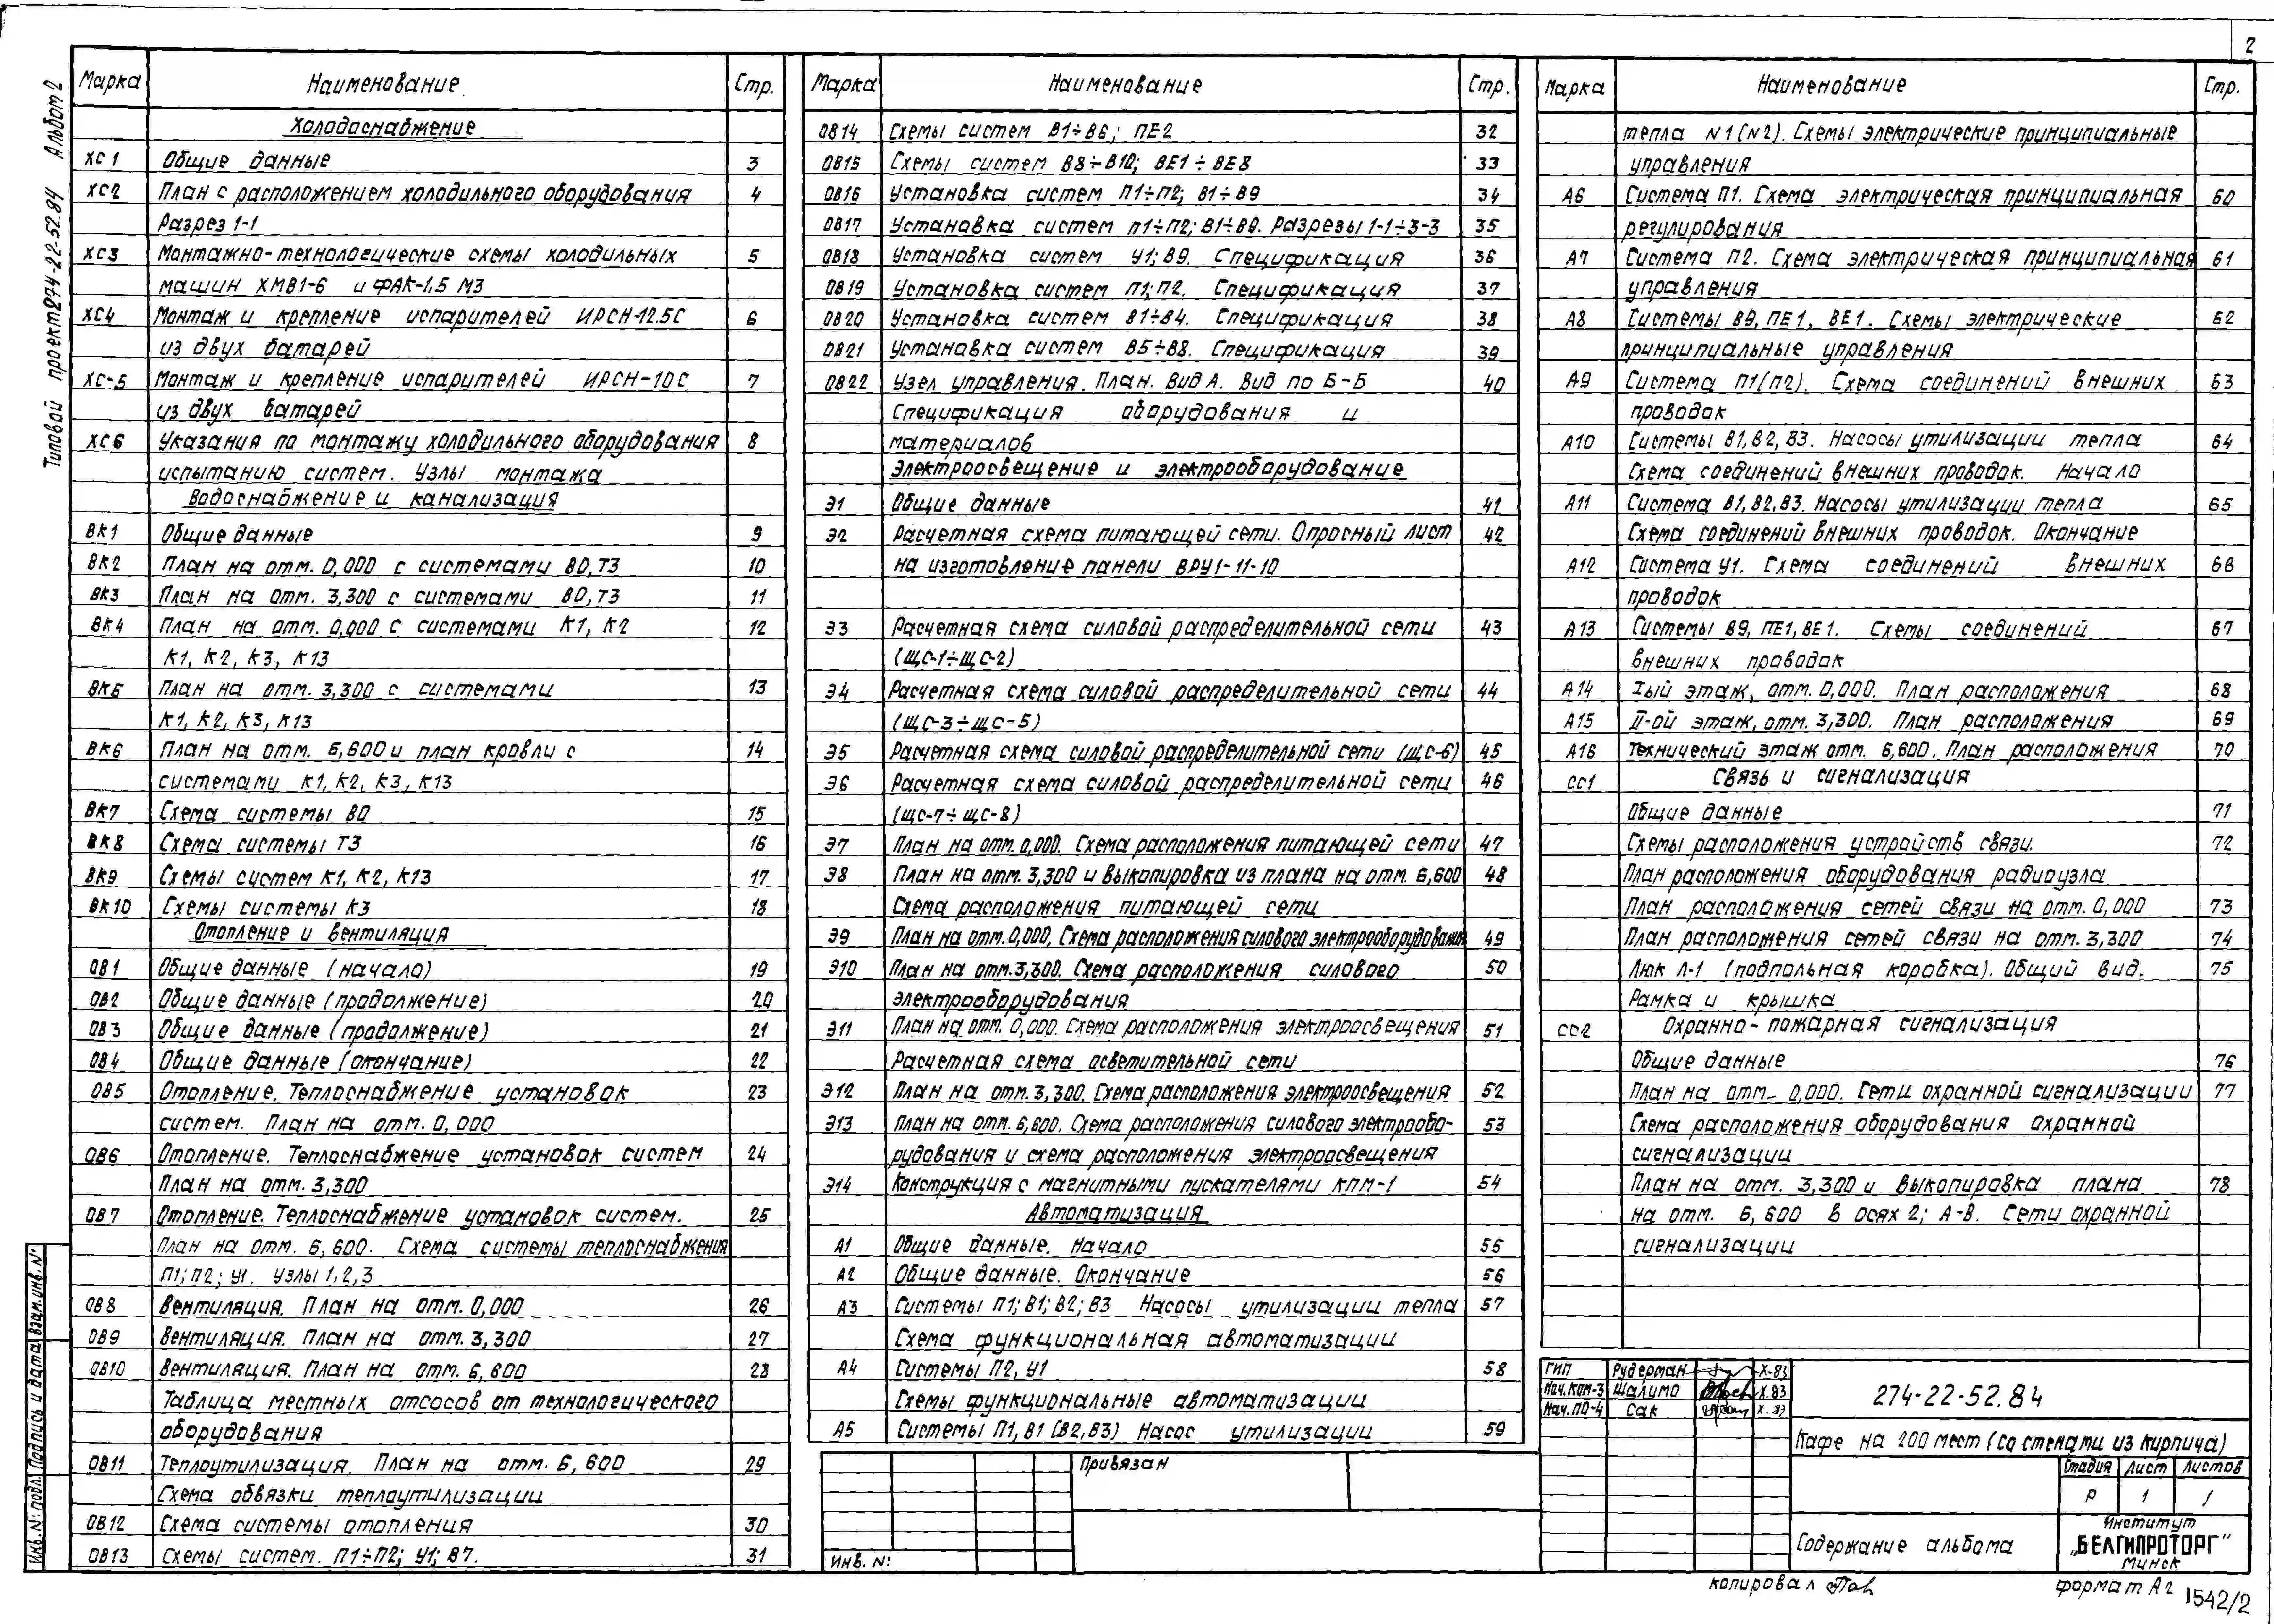 2
Типовой проект 274-22-52.84 Альбом 2
Марка Наименование Стр.
Холодоснабжение
ХС1 Общие данные 3
ХС2 План с расположением холодильного оборудования 4
Разрез 1-1
ХС3 Монтажно-технологические схемы холодильных 5
машин ХМВ1-6 и ФАК-1,5 М3
ХС4 Монтаж и крепление испарителей ИРСН-12.5С 6
из двух батарей
ХС-5 Монтаж и крепление испарителей ИРСН-10С 7
из двух батарей
ХС6 Указания по монтажу холодильного оборудования 8
испытанию систем. Узлы монтажа
Водоснабжение и канализация
ВК1 Общие данные 9
ВК2 План на отм. 0,000 с системами В0, Т3 10
ВК3 План на отм. 3,300 с системами В0, Т3 11
ВК4 План на отм. 0,000 с системами К1, К2 12
К1, К2, К3, К13
ВК5 План на отм. 3,300 с системами 13
К1, К2, К3, К13
ВК6 План на отм. 6,600 и план кровли с 14
системами К1, К2, К3, К13
ВК7 Схема системы В0 15
ВК8 Схема системы Т3 16
ВК9 Схемы систем К1, К2, К13 17
ВК10 Схемы системы К3 18
Отопление и вентиляция
ОВ1 Общие данные (начало) 19
ОВ2 Общие данные (продолжение) 20
ОВ3 Общие данные (продолжение) 21
ОВ4 Общие данные (окончание) 22
ОВ5 Отопление. Теплоснабжение установок 23
систем. План на отм. 0,000
ОВ6 Отопление. Теплоснабжение установок систем 24
План на отм. 3,300
ОВ7 Отопление. Теплоснабжение установок систем. 25
План на отм. 6,600. Схема системы теплоснабжения
П1; П2; У1. Узлы 1,2,3
ОВ8 Вентиляция. План на отм. 0,000 26
ОВ9 Вентиляция. План на отм. 3,300 27
ОВ10 Вентиляция. План на отм. 6,600 28
Таблица местных отсосов от технологического
оборудования
ОВ11 Теплоутилизация. План на отм. 6,600 29
Схема обвязки теплоутилизации
ОВ12 Схема системы отопления 30
ОВ13 Схемы систем. П1÷П2; У1; В7. 31
Марка Наименование Стр.
ОВ14 Схемы систем В1÷В6; ПЕ2 32
ОВ15 Схемы систем В8÷В10; ВЕ1÷ВЕ8 33
ОВ16 Установка систем П1÷П2; В1÷В9 34
ОВ17 Установка систем П1÷П2; В1÷В9. Разрезы 1-1÷3-3 35
ОВ18 Установка систем У1; В9. Спецификация 36
ОВ19 Установка систем П1; П2. Спецификация 37
ОВ20 Установка систем В1÷В4. Спецификация 38
ОВ21 Установка систем В5÷В8. Спецификация 39
ОВ22 Узел управления. План. Вид А. Вид по Б-Б 40
Спецификация оборудования и
материалов
Электроосвещение и электрооборудование
Э1 Общие данные 41
Э2 Расчетная схема питающей сети. Опросный лист 42
на изготовление панели ВРУ1-11-10
Э3 Расчетная схема силовой распределительной сети 43
(ЩС-1÷ЩС-2)
Э4 Расчетная схема силовой распределительной сети 44
(ЩС-3÷ЩС-5)
Э5 Расчетная схема силовой распределительной сети (ЩС-6) 45
Э6 Расчетная схема силовой распределительной сети 46
(ЩС-7÷ЩС-8)
Э7 План на отм. 0,000. Схема расположения питающей сети 47
Э8 План на отм. 3,300 и выкопировка из плана на отм. 6,600 48
Схема расположения питающей сети
Э9 План на отм. 0,000. Схема расположения силового электрооборудования 49
Э10 План на отм. 3,300. Схема расположения силового 50
электрооборудования
Э11 План на отм. 0,000. Схема расположения электроосвещения 51
Расчетная схема осветительной сети
Э12 План на отм. 3,300. Схема расположения электроосвещения 52
Э13 План на отм. 6,600. Схема расположения силового электрообо- 53
рудования и схема расположения электроосвещения
Э14 Конструкция с магнитными пускателями КПМ-1 54
Автоматизация
А1 Общие данные. Начало 55
А2 Общие данные. Окончание 56
А3 Системы П1; В1; В2; В3 Насосы утилизации тепла 57
Схема функциональная автоматизации
А4 Системы П2, У1 58
Схемы функциональные автоматизации
А5 Системы П1, В1 (В2, В3) Насос утилизации 59
Марка Наименование Стр.
тепла N1 (N2). Схемы электрические принципиальные
управления
А6 Система П1. Схема электрическая принципиальная 60
регулирования
А7 Система П2. Схема электрическая принципиальная 61
управления
А8 Системы В9, ПЕ1, ВЕ1. Схемы электрические 62
принципиальные управления
А9 Система П1(П2). Схема соединений внешних 63
проводок
А10 Системы В1, В2, В3. Насосы утилизации тепла 64
Схема соединений внешних проводок. Начало
А11 Система В1, В2, В3. Насосы утилизации тепла 65
Схема соединений внешних проводок. Окончание
А12 Система У1. Схема соединений внешних 66
проводок
А13 Системы В9, ПЕ1, ВЕ1. Схемы соединений 67
внешних проводок
А14 Iый этаж, отм. 0,000. План расположения 68
А15 II-ой этаж, отм. 3,300. План расположения 69
А16 Технический этаж отм. 6,600. План расположения 70
СС1 Связь и сигнализация
Общие данные 71
Схемы расположения устройств связи. 72
План расположения оборудования радиоузла
План расположения сетей связи на отм. 0,000 73
План расположения сетей связи на отм. 3,300 74
Люк Л-1 (подпольная коробка). Общий вид. 75
Рамка и крышка
СС2 Охранно-пожарная сигнализация
Общие данные 76
План на отм. 0,000. Сети охранной сигнализации 77
Схема расположения оборудования охранной
сигнализации
План на отм. 3,300 и выкопировка плана 78
на отм. 6,600 в осях 2; А-В. Сети охранной
сигнализации
Инв. N: подл. Подпись и дата Взам. инв. N:
Привязан
Инв. N:
ГИП Рудерман X-83
Нач. КПМ-3 Шалимо X.83
Нач. ПО-4 Сак X.83
274-22-52.84
Кафе на 200 мест (со стенами из кирпича)
Стадия Лист Листов
Р 1 1
Содержание альбома
Институт
„БЕЛГИПРОТОРГ"
Минск
копировал
формат А2
1542/2